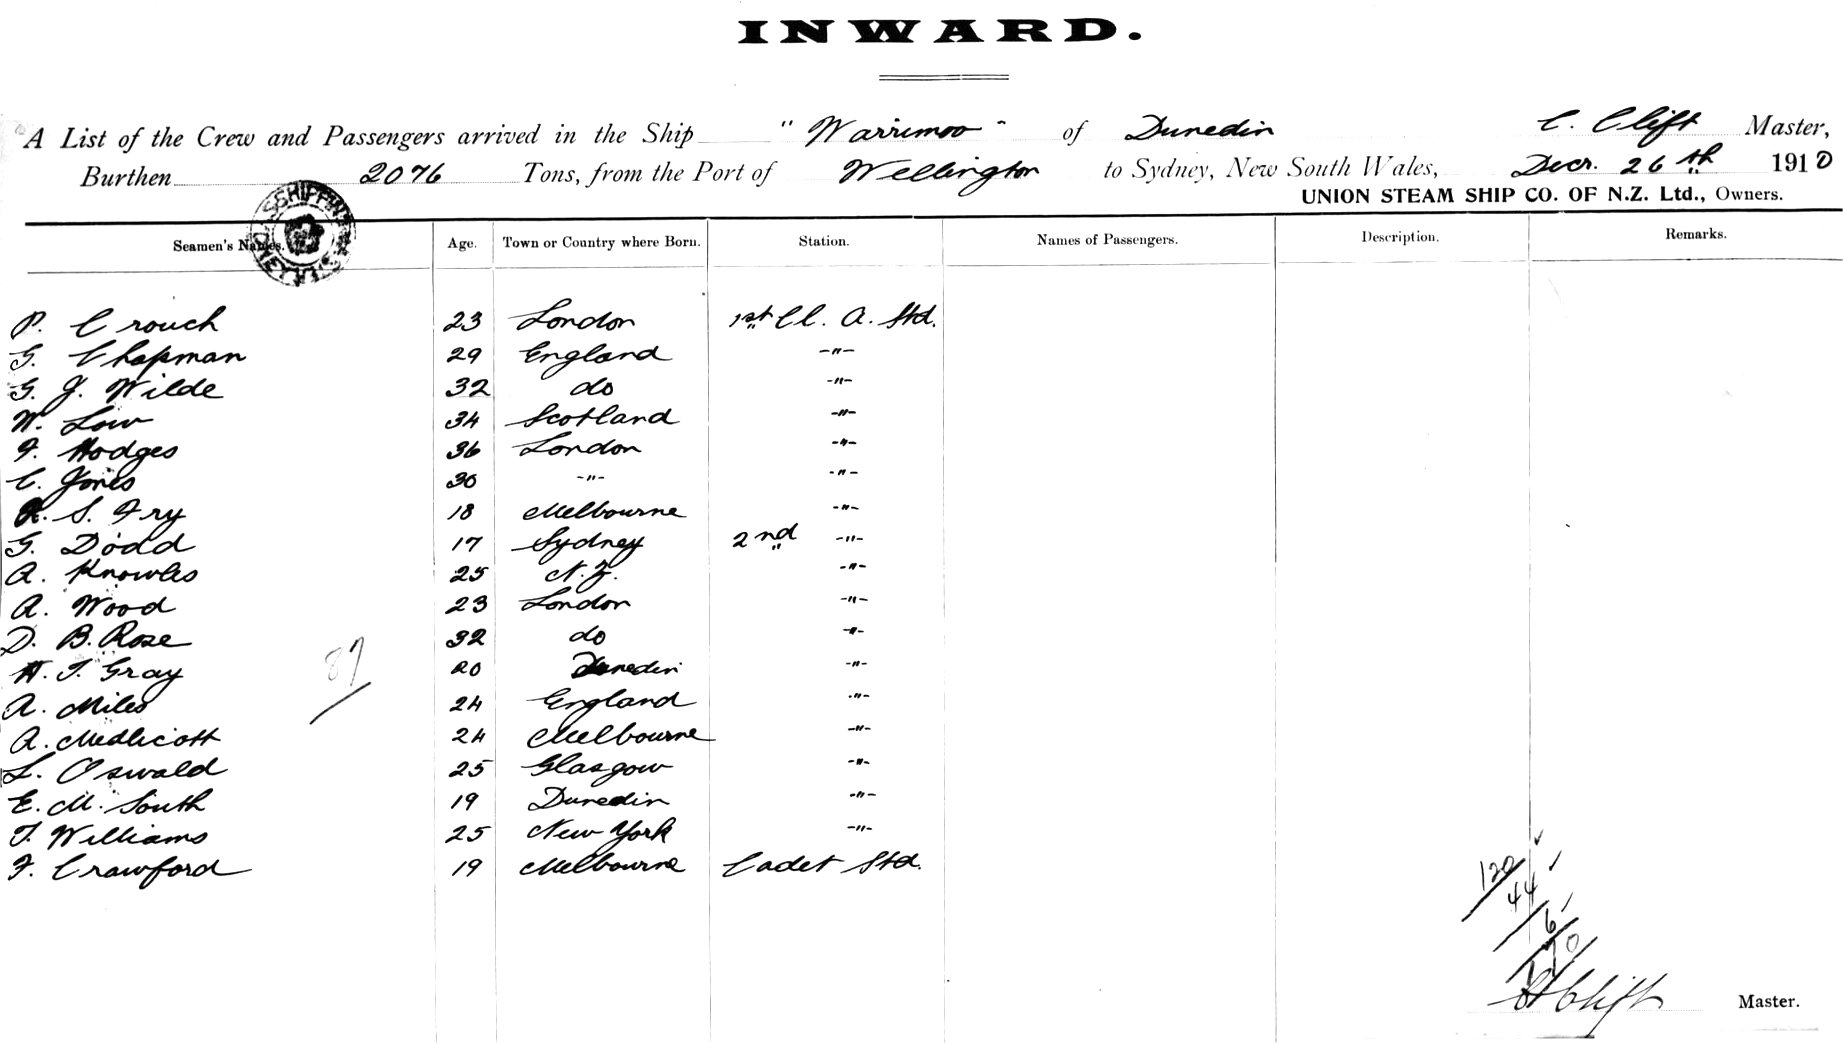 INWARD.
A List of the Crew and Passengers arrived in the Ship "Warrimoo" of Dunedin C. Clift Master,
Burthen 2076 Tons, from the Port of Wellington to Sydney, New South Wales, Decr. 26th 1910
UNION STEAM SHIP CO. OF N.Z. Ltd., Owners.
SHIPPING
Seamen's Names. Age. Town or Country where Born. Station. Names of Passengers. Description. Remarks.
P. Crouch 23 London 1st Cl. A. Std.
G. Chapman 29 England -"-
G. J. Wilde 32 do -"-
W. Low 34 Scotland -"-
F. Hodges 36 London -"-
C. Jones 30 -"- -"-
R. S. Fry 18 Melbourne -"-
G. Dodd 17 Sydney 2nd -"-
A. Knowles 25 N.Z. -"-
A. Wood 23 London -"-
D. B. Rose 32 do -"-
H. T. Gray 20 Dunedin -"-
87
A. Miles 24 England -"-
A. Medlicott 24 Melbourne -"-
L. Oswald 25 Glasgow -"-
E. M. South 19 Dunedin -"-
T. Williams 25 New York -"-
F. Crawford 19 Melbourne Cadet Std.
120
44
6
170
Clift Master.